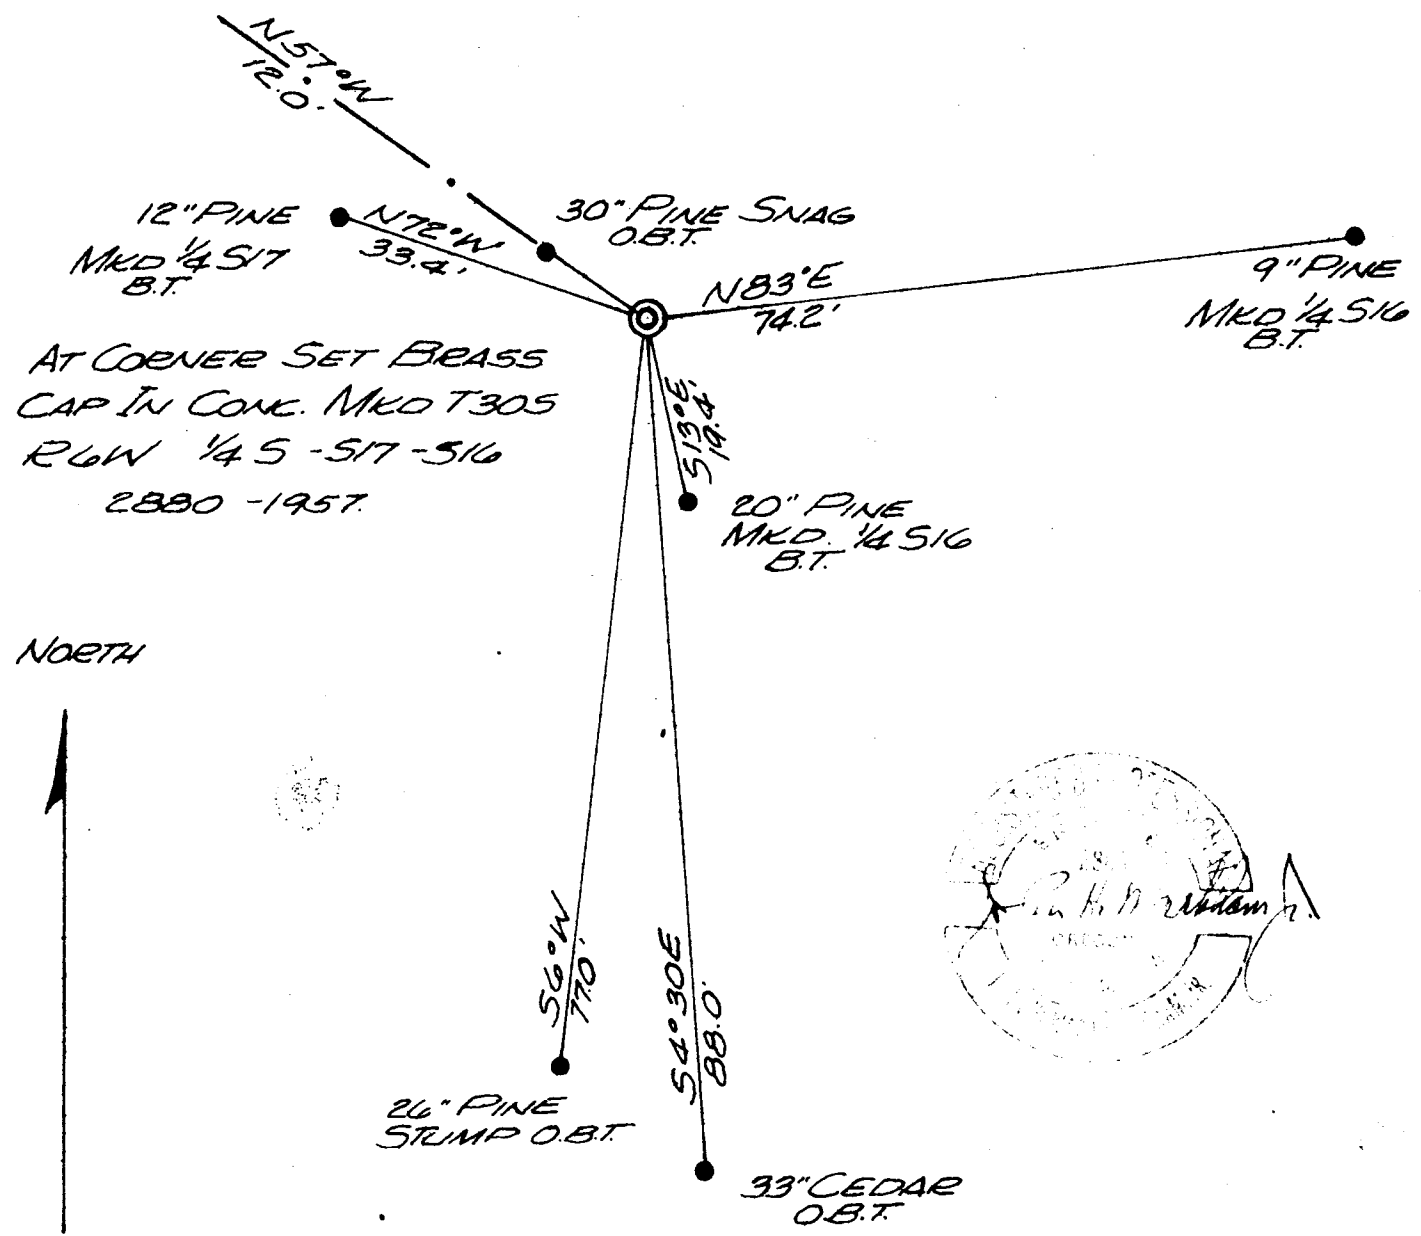 N57°W
12.0'
12" PINE
MKD 1/4 S17
B.T.
N72°W
33.4'
30" PINE SNAG
O.B.T.
N83°E
74.2'
9" PINE
MKD 1/4 S16
B.T.
AT CORNER SET BRASS
CAP IN CONC. MKD T30S
R6W 1/4 S -S17 -S16
2880 -1957.
S13°E
19.4'
20" PINE
MKD. 1/4 S16
B.T.
NORTH
S6°W
77.0'
S4°30E
88.0'
26" PINE
STUMP O.B.T.
33" CEDAR
O.B.T.
OREGON